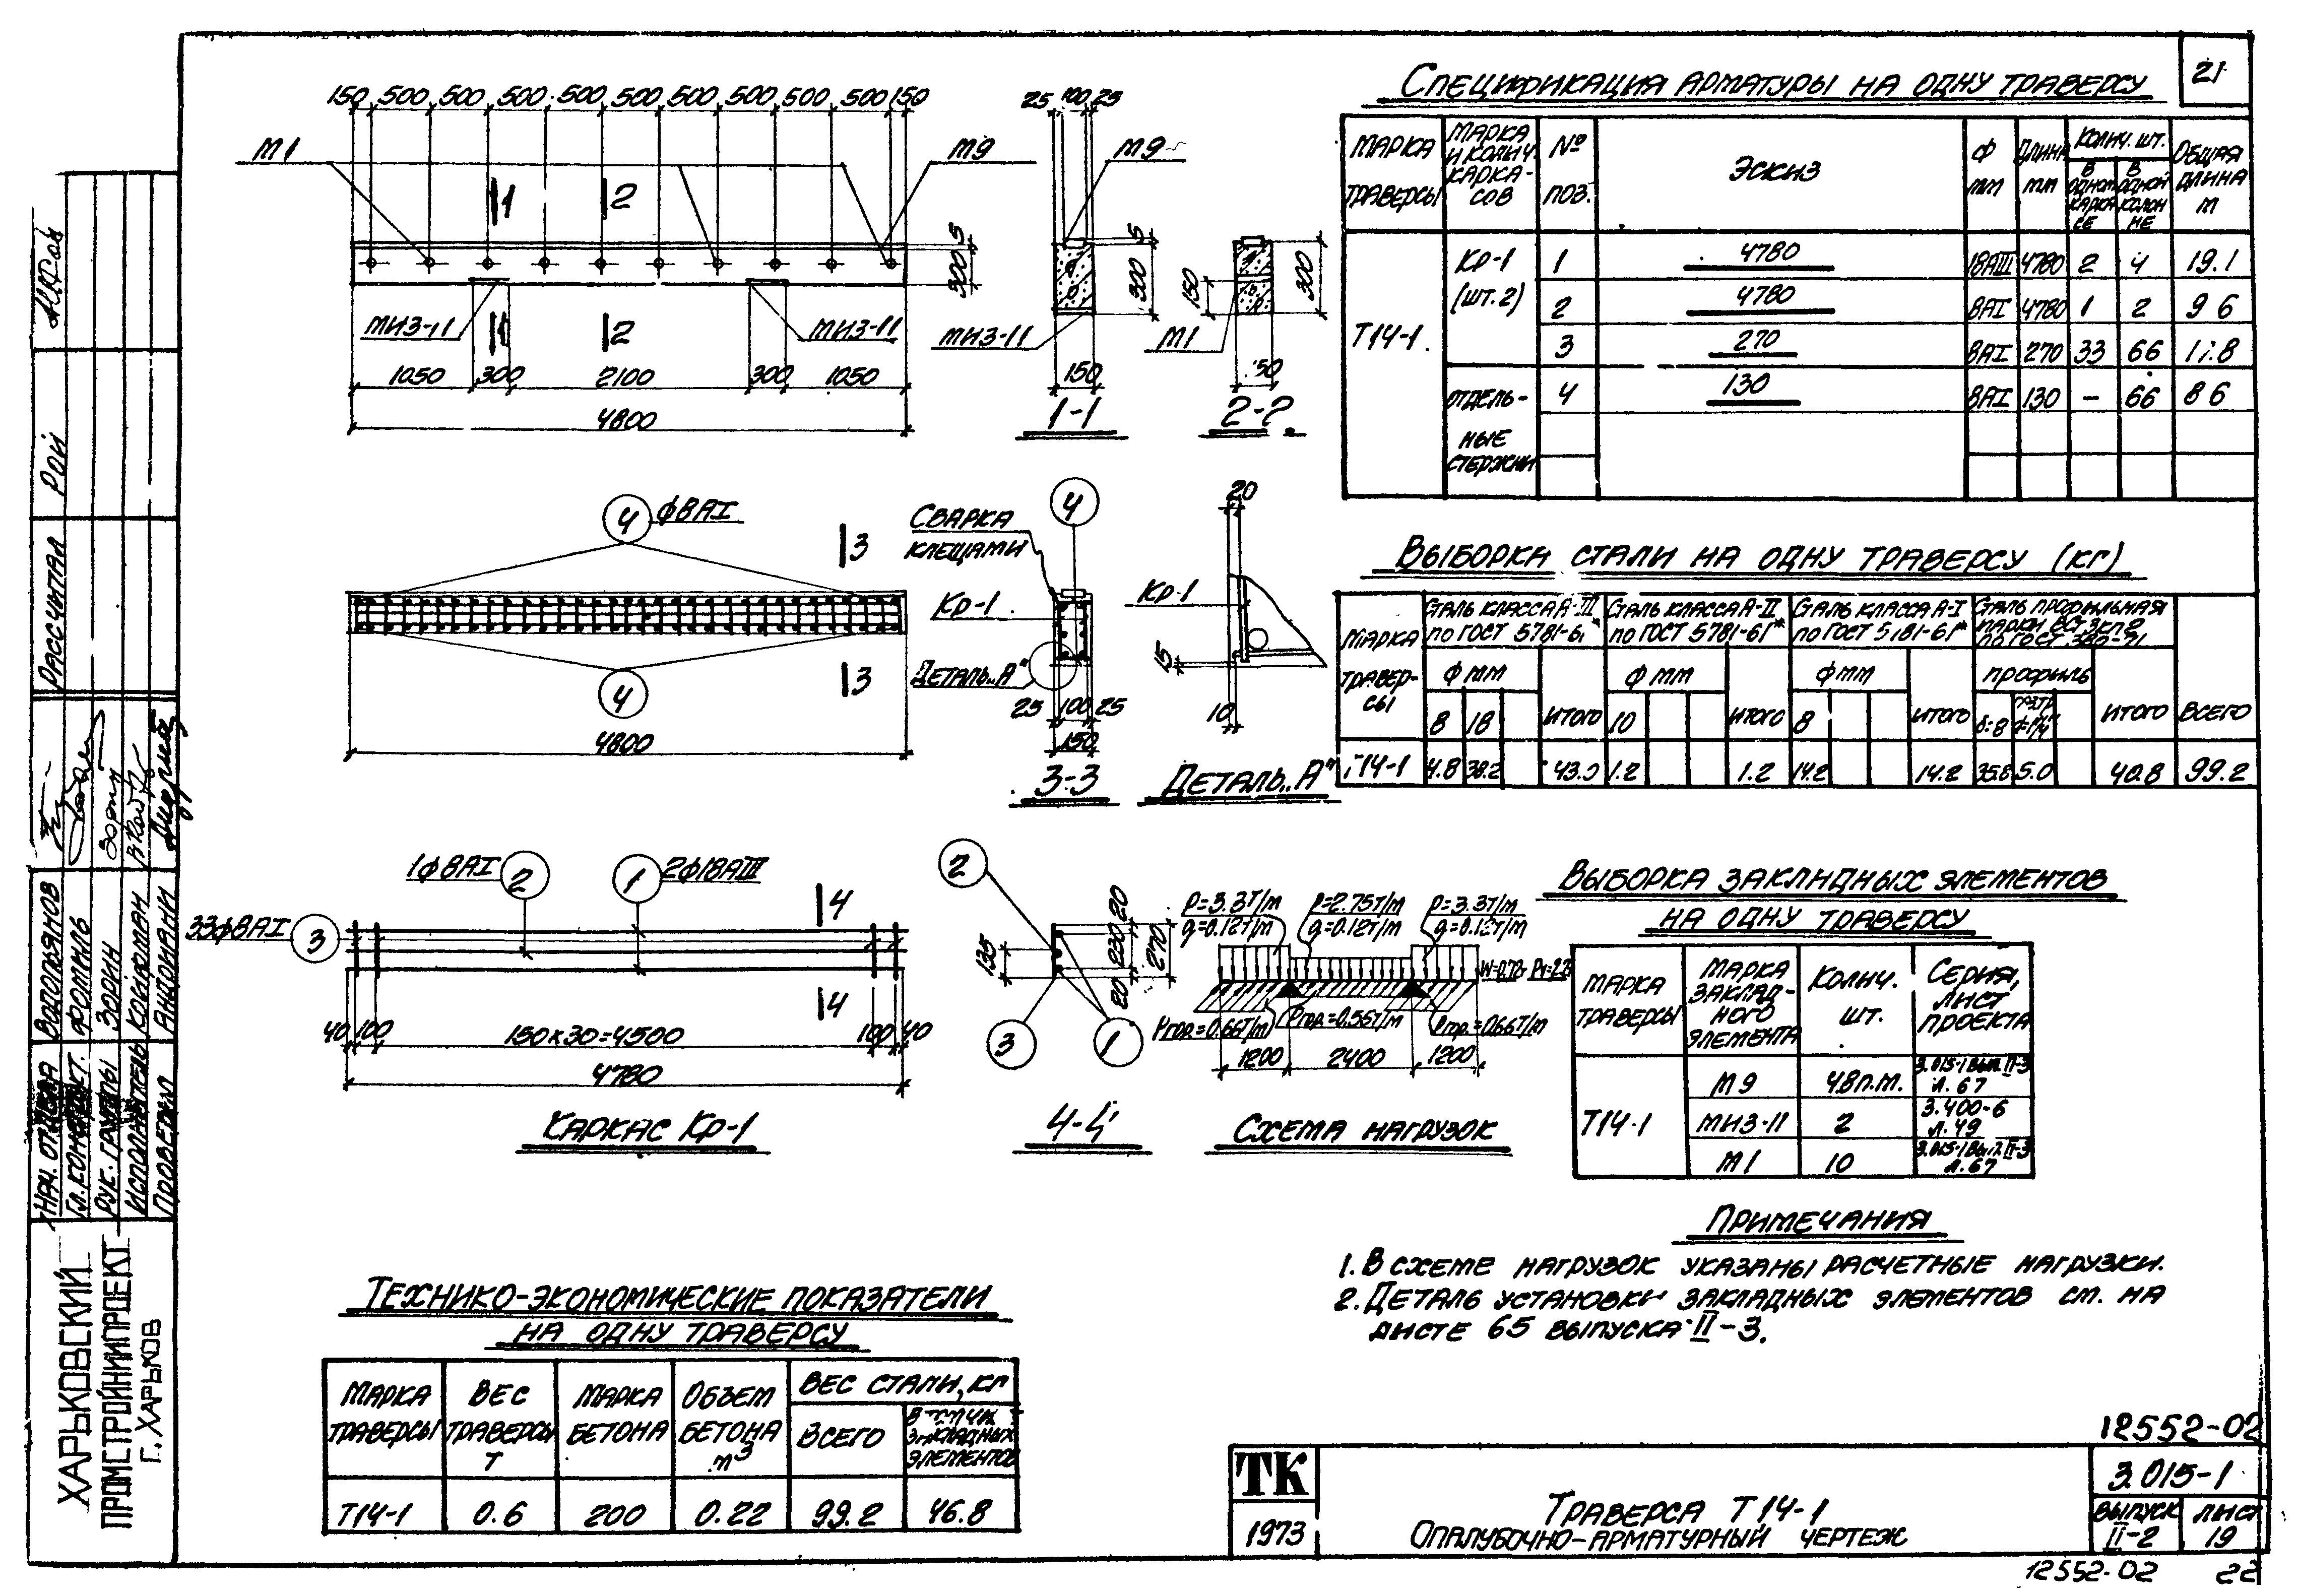 21
150 500 500 500 500 500 500 500 500 500 150
М1
М9
1 2
5
300
МИЗ-11
1 2
МИЗ-11
1050 300 2100 300 1050
4800
25 100 25
М9
5
300
МИЗ-11
150
1-1
150
300
М1
2-2
4 ϕ8АI
3
4
3
4800
Сварка
клещами
4
Кр-1
Деталь „А"
25 100 25
150
3-3
20
Кр-1
15
10
Деталь „А"
1ϕ8АI 2
1 2ϕ18АIII
4
33ϕ8АI 3
4
40 100 150×30=4500 100 40
4780
Каркас Кр-1
2
135
20
230
20
270
3 1
4-4
P=3.3т/м P=2.75т/м P=3.3т/м
g=0.12т/м g=0.12т/м g=0.12т/м
Ргор.=0.66т/м Ргор.=0.56т/м Ргор.=0.66т/м
1200 2400 1200
Схема нагрузок
Спецификация арматуры на одну траверсу
Марка траверсы
Марка и колич. каркасов
№ поз.
Эскиз
Ф мм
Длина мм
Колич. шт.
в одном каркасе
в одной колонне
Общая длина м
Т14-1
Кр-1 (шт.2)
1 4780 18АIII 4780 2 4 19.1
2 4780 8АI 4780 1 2 9 6
3 270 8АI 270 33 66 17.8
Отдельные стержни
4 130 8АI 130 – 66 8 6
Выборка стали на одну траверсу (кг)
Марка траверсы
Сталь класса А-III по ГОСТ 5781-61*
Сталь класса А-II по ГОСТ 5781-61*
Сталь класса А-I по ГОСТ 5781-61*
Сталь профильная марки ВСт3кп2 по ГОСТ 380-71
Ф мм Ф мм Ф мм профиль
8 18 Итого 10 Итого 8 Итого δ=8 Итого Всего
Т14-1 4.8 38.2 43.0 1.2 1.2 14.2 14.2 35.8 5.0 40.8 99.2
Выборка закладных элементов
на одну траверсу
Марка траверсы
Марка закладного элемента
Колич. шт.
Серия, лист проекта
Т14-1
М9 4.8п.м. 3.015-1 Вып.II-3 л. 67
МИЗ-11 2 3.400-6 л. 49
М1 10 3.015-1 Вып.II-3 л. 67
Примечания
1. В схеме нагрузок указаны расчетные нагрузки.
2. Деталь установки закладных элементов см. на
листе 65 выпуска II-3.
Технико-экономические показатели
на одну траверсу
Марка траверсы
Вес траверсы т
Марка бетона
Объем бетона м3
Вес стали, кг
Всего
В том числ. закладных элементов
Т14-1 0.6 200 0.22 99.2 46.8
12552-02
ТК
1973
Траверса Т14-1
Опалубочно-арматурный чертеж
3.015-1
Выпуск II-2
Лист 19
12552-02 22
Рассчитал Рой
Нач. отдела Водопьянов
Гл. конструкт.
Рук. группы Зорин
Исполнитель
Проверил
Харьковский
Промстройниипроект
г. Харьков